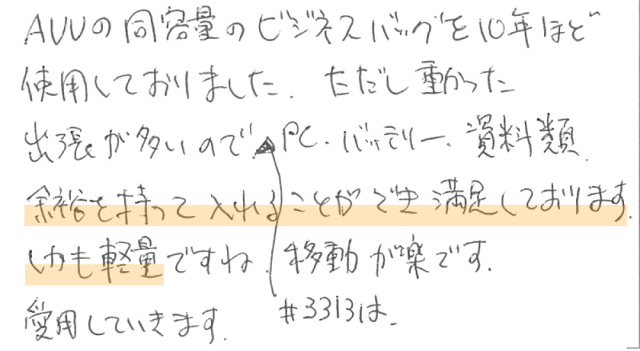 AUUの同容量のビジネスバッグを10年ほど
使用しておりました。ただし重かった
出張が多いので、PC、バッテリー、資料類
余裕を持って入れることができ満足しております。
しかも軽量ですね。移動が楽です。
愛用していきます。 #3313は、